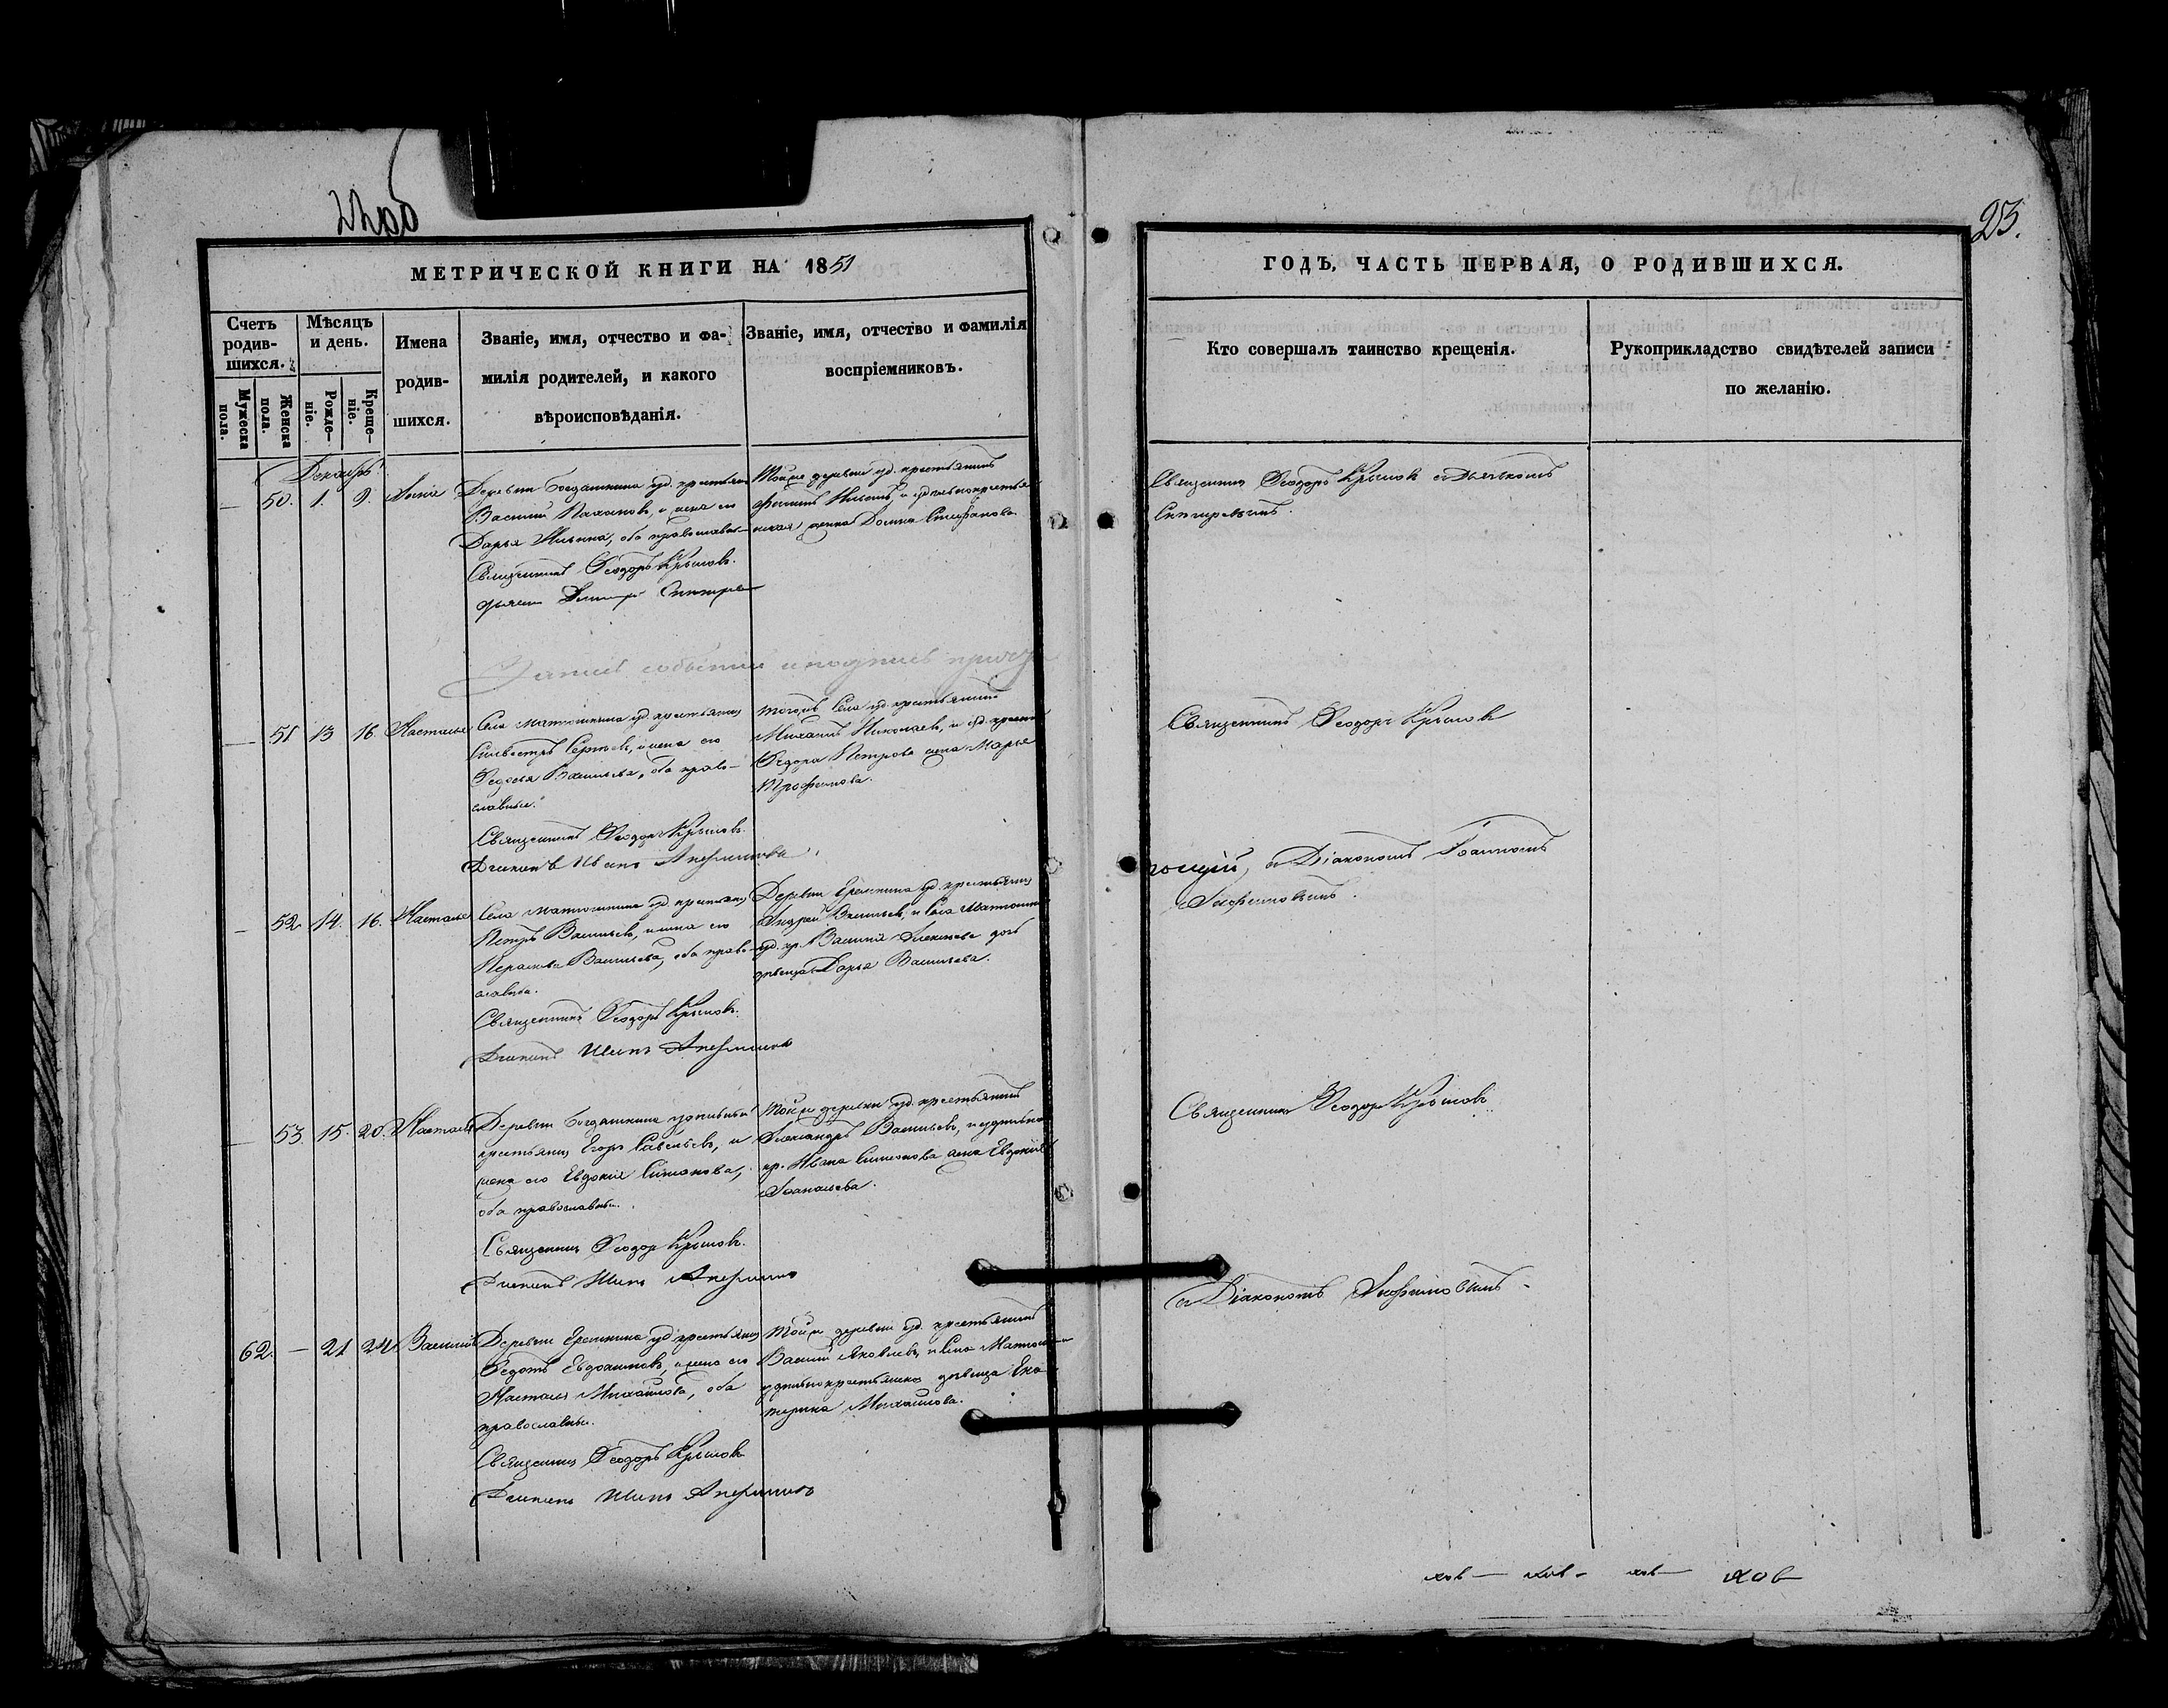 22об
23.
МЕТРИЧЕСКОЙ КНИГИ НА 1851
Счетъ родив-шихся.
Мѣсяцъ и день.
Мужеска пола.
Женска пола.
Рожде-ніе.
Креще-ніе.
Имена родив-шихся.
Званіе, имя, отчество и фа-
милія родителей, и какого
вѣроисповѣданія.
Званіе, имя, отчество и фамилія
воспріемниковъ.
Декабрь
— 50. 1. 9. Анна
Деревни Богдашкина уд. крестьян
Василій, и жена его
Дарья Ильина, оба православные
Священникъ Ѳеодоръ Крыловъ.
Тойже деревни уд. крестьянинъ
и удѣльнокрестьян
ская женка Домна Стефанова.
Запись событій и подпись причта
— 51 13 16. Настасья
Села Матюшкина уд. крестьянинъ
Сильвестръ Сергѣевъ, и жена его
Ѳедосья Васильева, оба право-
славные.
Священникъ Ѳеодоръ Крыловъ.
Діаконъ Иванъ
тогожъ Села уд. крестьянинъ
Михаилъ Николаевъ, и уд. крест
Ѳедора Петрова жена Марья
Трофимова.
— 52 14. 16. Настасья
Села Матюшкина уд. крестьянинъ
Петръ Васильевъ, и жена его
Васильева, оба право-
славные.
Священникъ Ѳеодоръ Крыловъ.
Діаконъ Иванъ
Деревни Еремкина уд. крестьянинъ
Андрей Васильевъ, и Села Матюшкина
уд. кр. Василія Алексѣева дочь
дѣвица Дарья Васильева.
— 53. 15. 20. Настасья
Деревни Богдашкина удѣльный
крестьянинъ Егоръ Савельевъ, и
жена его Евдокія Симонова,
оба православные.
Священникъ Ѳеодоръ Крыловъ.
Діаконъ Иванъ
Тойже деревни уд. крестьянинъ
Александръ Васильевъ, и удѣльнаго
кр. Ивана Симонова жена Евдокія
62. — 21 24 Василій
Деревни Еремкина уд. крестьянинъ
Ѳедотъ Евдокимовъ, и жена его
Настасья Михайлова, оба
православные.
Священникъ Ѳеодоръ Крыловъ
Діаконъ Иванъ
Тойже деревни уд. крестьянинъ
Василій Яковлевъ, и Села Матюшкина
удѣльнокрестьянская дѣвица Ека
терина Михайлова.
ГОДЪ, ЧАСТЬ ПЕРВАЯ, О РОДИВШИХСЯ.
Кто совершалъ таинство крещенія.
Рукоприкладство свидѣтелей записи
по желанію.
Священникъ Ѳеодоръ Крыловъ съ Дьячкомъ
Священникъ Ѳеодоръ Крыловъ
съ Діакономъ Іоанномъ
Священникъ Ѳеодоръ Крыловъ
съ Діакономъ